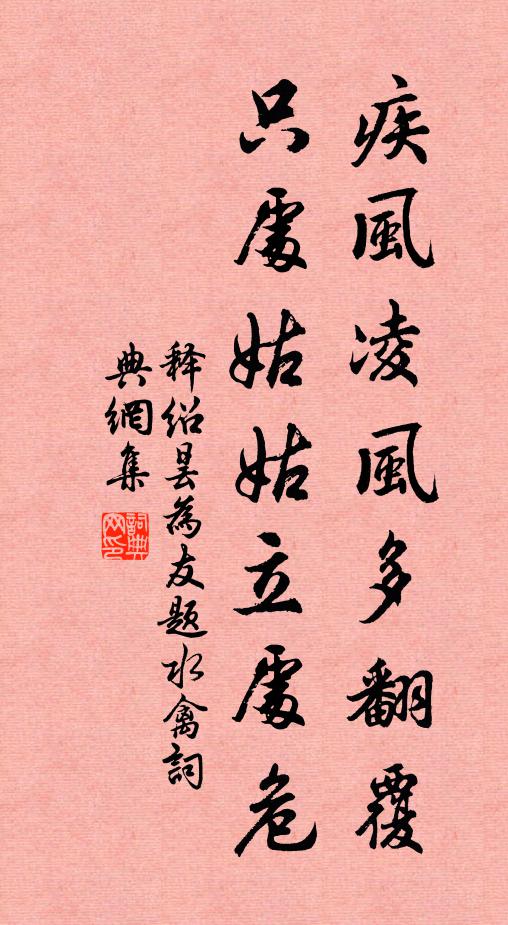 疾風凌風多翻覆
只處姑姑立處危
释紹昙為友题水禽詞
典網集
詞典網印